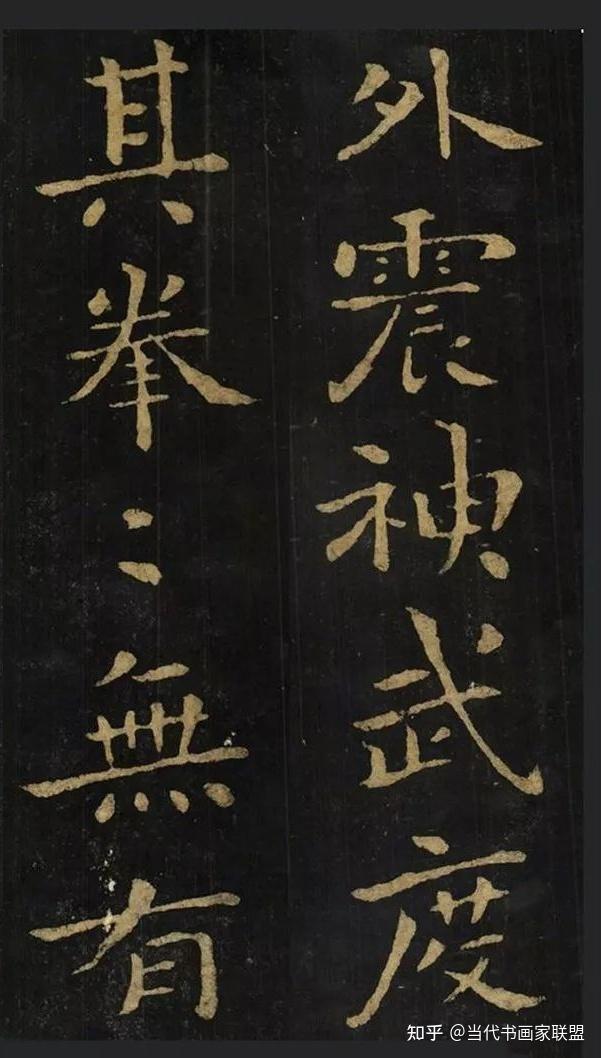 外震神武度
其拳〻無有
知乎 @当代书画家联盟